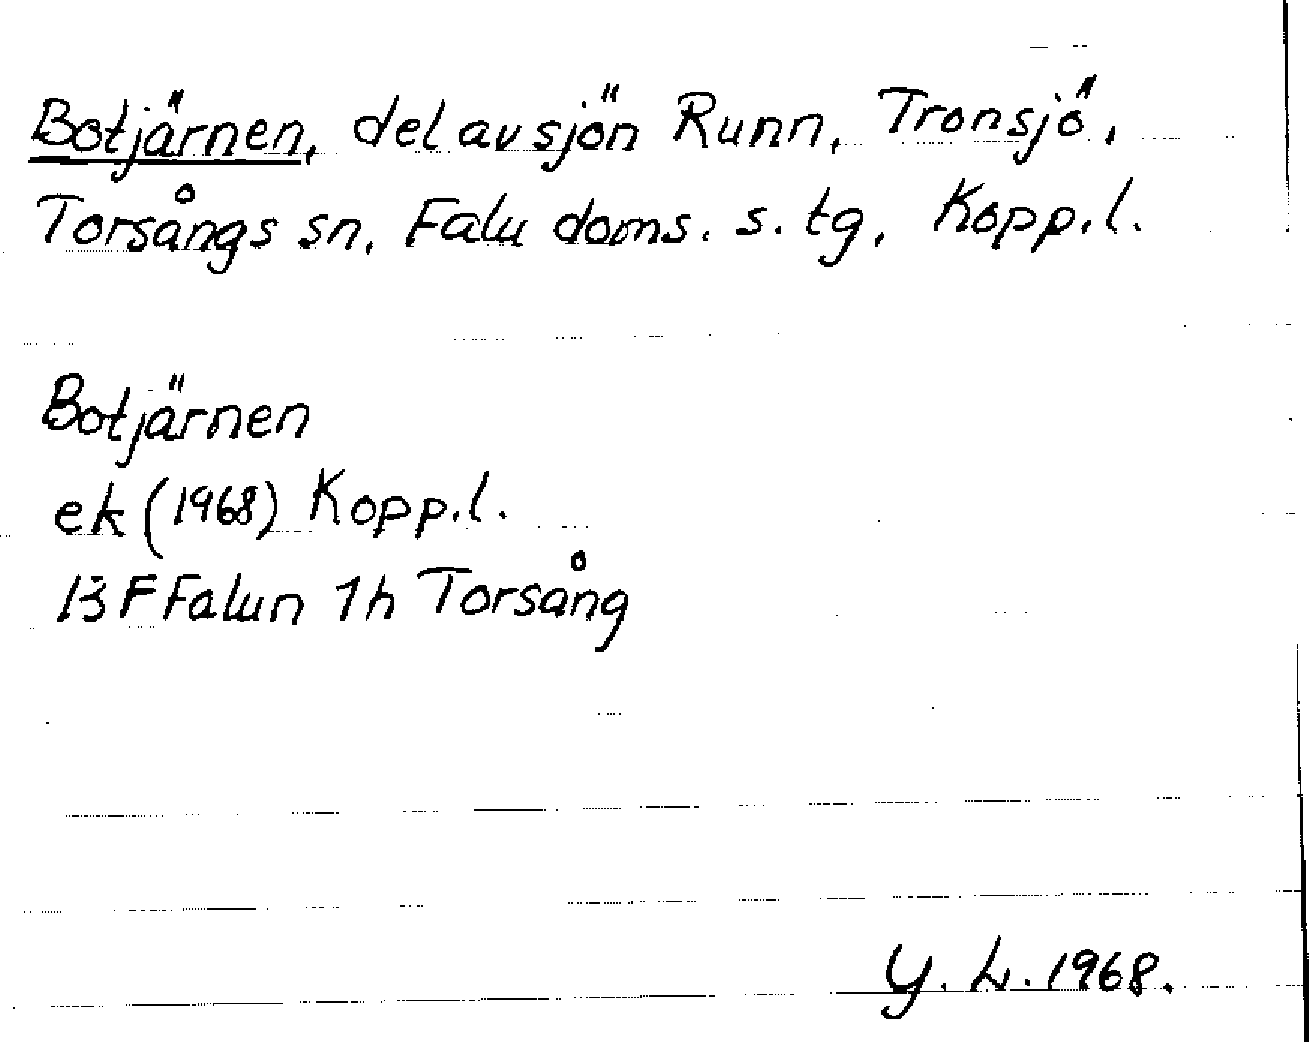 Botjärnen, del av sjön Runn, Tronsjö,
Torsångs sn, Falu doms. s. tg, Kopp.l.
Botjärnen
ek (1968) Kopp.l.
13 F Falun 1h Torsång
Y. L. 1968.